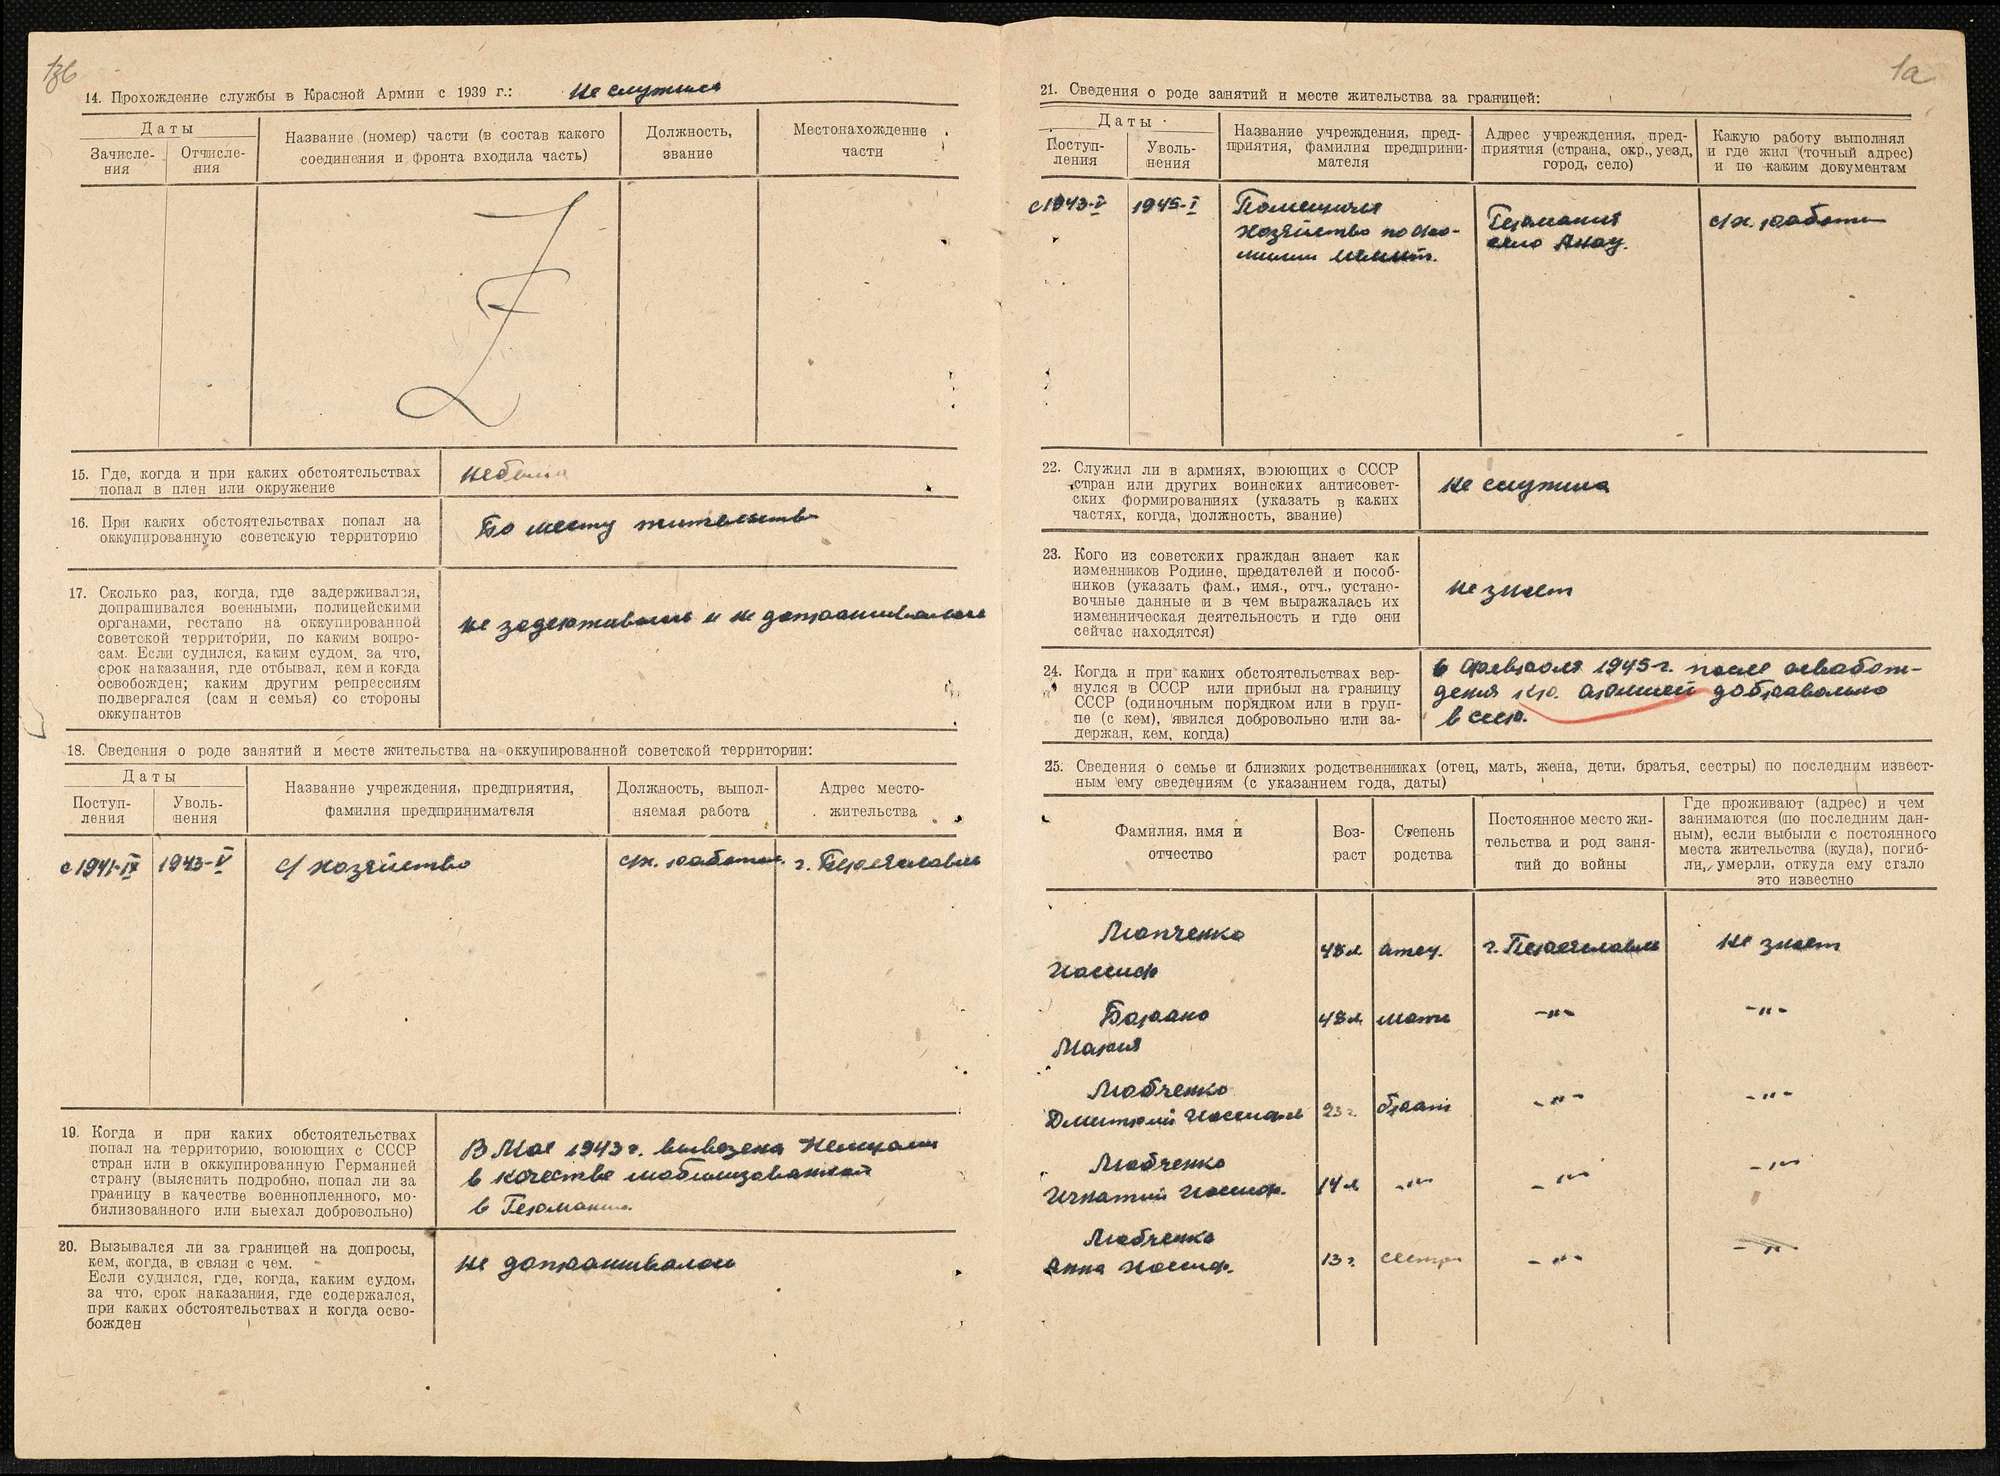 136
14. Прохождение службы в Красной Армии с 1939 г.: не служила
Даты
Зачисле-
ния
Отчисле-
ния
Название (номер) части (в состав какого
соединения и фронта входила часть)
Должность,
звание
Местонахождение
части
15. Где, когда и при каких обстоятельствах
попал в плен или окружение
не была
16. При каких обстоятельствах попал на
оккупированную советскую территорию
По месту жительства
17. Сколько раз, когда, где задерживался,
допрашивался военными, полицейскими
органами, гестапо на оккупированной
советской территории, по каким вопро-
сам. Если судился, каким судом, за что,
срок наказания, где отбывал, кем и когда
освобожден; каким другим репрессиям
подвергался (сам и семья) со стороны
оккупантов
не задерживалась и не допрашивалась
18. Сведения о роде занятий и месте жительства на оккупированной советской территории:
Даты
Поступ-
ления
Уволь-
нения
Название учреждения, предприятия,
фамилия предпринимателя
Должность, выпол-
няемая работа
Адрес место-
жительства
с 1941-IX
1943-V
с/хозяйство
с/х. работы.
г. Переяславль
19. Когда и при каких обстоятельствах
попал на территорию, воюющих с СССР
стран или в оккупированную Германией
страну (выяснить подробно, попал ли за
границу в качестве военнопленного, мо-
билизованного или выехал добровольно)
В Мае 1943 г. вывезена Немцами
в качестве мобилизованной
в Германию.
20. Вызывался ли за границей на допросы,
кем, когда, в связи с чем.
Если судился, где, когда, каким судом,
за что, срок наказания, где содержался,
при каких обстоятельствах и когда осво-
божден
не допрашивалась
1а
21. Сведения о роде занятий и месте жительства за границей:
Даты
Поступ-
ления
Уволь-
нения
Название учреждения, пред-
приятия, фамилия предприни-
мателя
Адрес учреждения, пред-
приятия (страна, окр., уезд,
город, село)
Какую работу выполнял
и где жил (точный адрес)
и по каким документам
с 1943-V
1945-I
Помещичье
хозяйство по фа-
милии
Германия
село
с/х. работы
22. Служил ли в армиях, воюющих с СССР
стран или других воинских антисовет-
ских формированиях (указать в каких
частях, когда, должность, звание)
не служила
23. Кого из советских граждан знает как
изменников Родине, предателей и пособ-
ников (указать фам., имя., отч., устано-
вочные данные и в чем выражалась их
изменническая деятельность и где они
сейчас находятся)
не знает
24. Когда и при каких обстоятельствах вер-
нулся в СССР или прибыл на границу
СССР (одиночным порядком или в груп-
пе (с кем), явился добровольно или за-
держан, кем, когда)
6 февраля 1945 г. после освабож-
дения кр. армией добравольно
в ссср.
25. Сведения о семье и близких родственниках (отец, мать, жена, дети, братья, сестры) по последним извест-
ным ему сведениям (с указанием года, даты)
Фамилия, имя и
отчество
Воз-
раст
Степень
родства
Постоянное место жи-
тельства и род заня-
тий до войны
Где проживают (адрес) и чем
занимаются (по последним дан-
ным), если выбыли с постоянного
места жительства (куда), погиб-
ли, умерли, откуда ему стало
это известно
Иосиф
48 л
отец.
г. Переяславль
не знает
Мария
48 л
мать
-"-
-"-
Любченко
Дмитрий Иосипов
23 г.
брат
-"-
-"-
Любченко
Игнатий Иосиф.
14 л
-"-
-"-
-"-
Любченко
Анна Иосиф.
13 г.
сестра
-"-
-"-